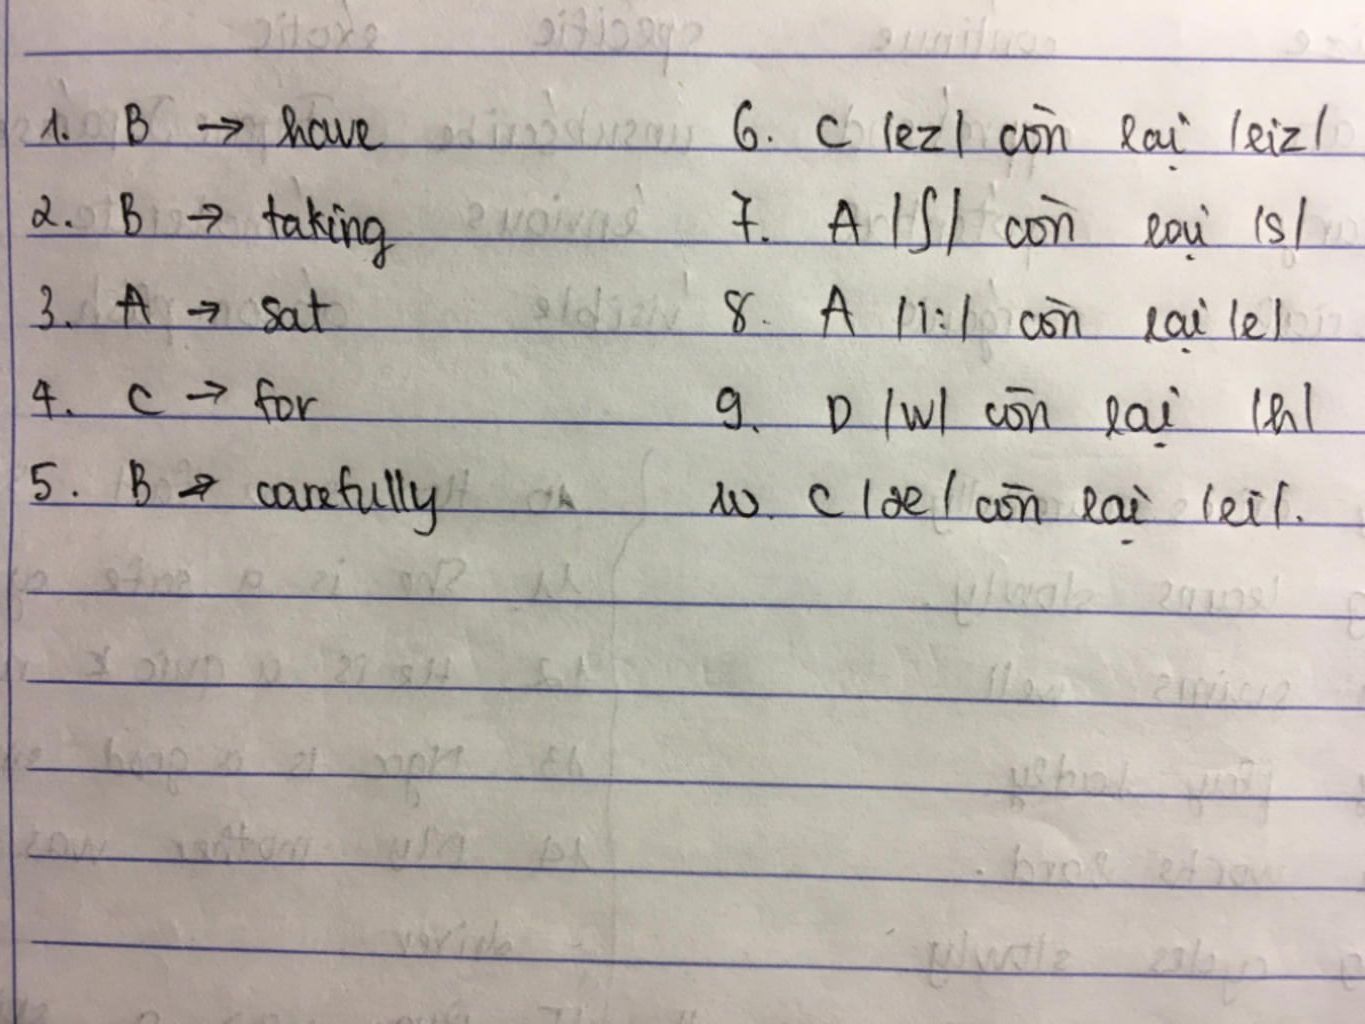 1. B → have
2. B → taking
3. A → sat
4. C → for
5. B → carefully
6. C /ez/ còn lại /eiz/
7. A /ʃ/ còn lại /s/
8. A /i:/ còn lại /e/
9. D /w/ còn lại /h/
10. C /æ/ còn lại /ei/.